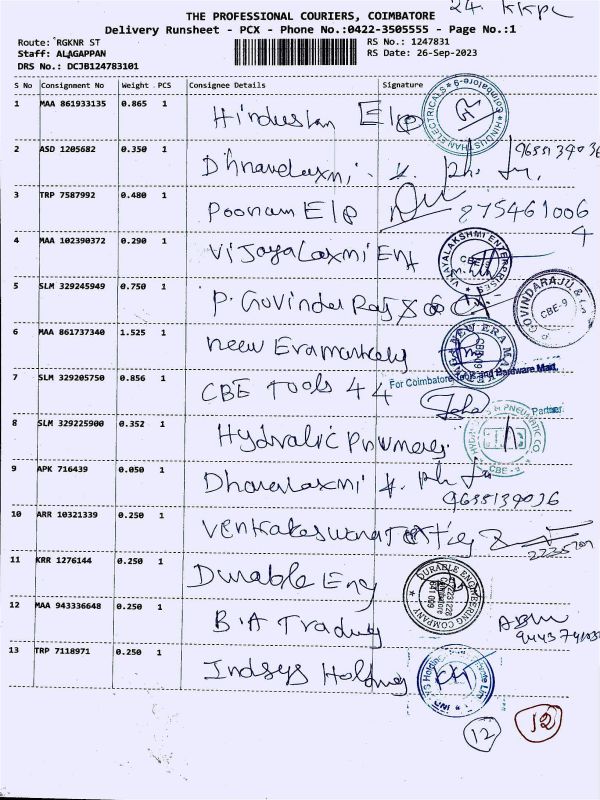 24. KKPC
THE PROFESSIONAL COURIERS, COIMBATORE
Delivery Runsheet - PCX - Phone No:0422-3505555 - Page No.:1
Route: RGKNR ST RS No.: 1247831
Staff: ALAGAPPAN RS Date: 26-Sep-2023
DRS No.: DCJB124783101
S No Consignment No Weight PCS Consignee Details Signature
1 MAA 861933135 0.865 1 Hindustan Elp HINDUSTHAN ELECTRICALS Coimbatore-9
2 ASD 1205682 0.350 1 Dhanalaxmi. 9655139036
3 TRP 7587992 0.480 1 Poonam Elp 8754610064
4 MAA 102390372 0.290 1 Vijayalaxmi Ent VIJAYALAKSHMI ENTERPRISES CBE-9
5 SLM 329245949 0.750 1 P. Govinda Raj & Co GOVINDARAJU & CBE-9
6 MAA 861737340 1.525 1 New Era NEW ERA CBE-9
7 SLM 329205750 0.856 1 CBE Tools 44 For Coimbatore Tools and Hardware Mart,
Partner.
8 SLM 329225900 0.352 1 Hydralic HYDRAULICS & PNEUMATIC CO CBE-9
9 APK 716439 0.050 1 Dhanalaxmi 9655139036
10 ARR 10321339 0.250 1 Venkateswara
11 KRR 1276144 0.250 1 Durable Eng DURABLE ENGINEERING COMPANY Coimbatore 641 009
12 MAA 943336648 0.250 1 BA Trading
13 TRP 7118971 0.250 1 Indsys Holding
12 12